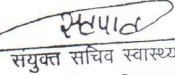 संयुक्त सचिव स्वास्थ्य